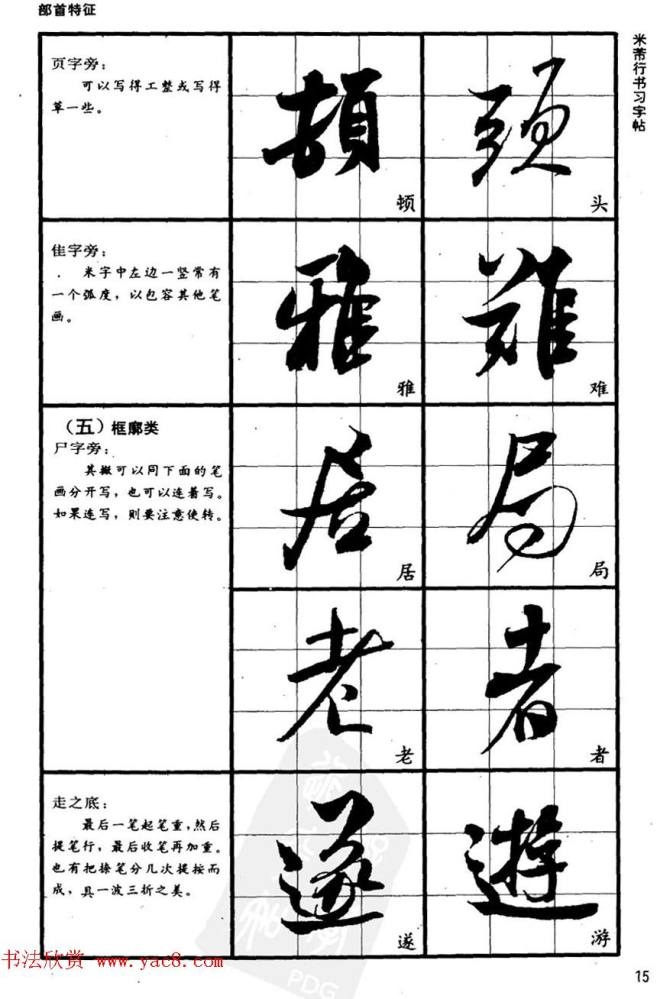 部首特征
米芾行书习字帖
页字旁：
可以写得工整或写得
草一些。
頓
顿
頭
头
隹字旁：
. 米字中左边一竖常有
一个弧度，以包容其他笔
画。
雅
雅
難
难
（五）框廓类
尸字旁：
其撇可以同下面的笔
画分开写，也可以连着写。
如果连写，则要注意使转。
居
居
局
局
老
老
者
者
走之底：
最后一笔起笔重，然后
提笔行，最后收笔再加重。
也有把捺笔分几次提按而
成，具一波三折之美。
遂
遂
遊
游
书法欣赏 www.yac8.com
PDG
15